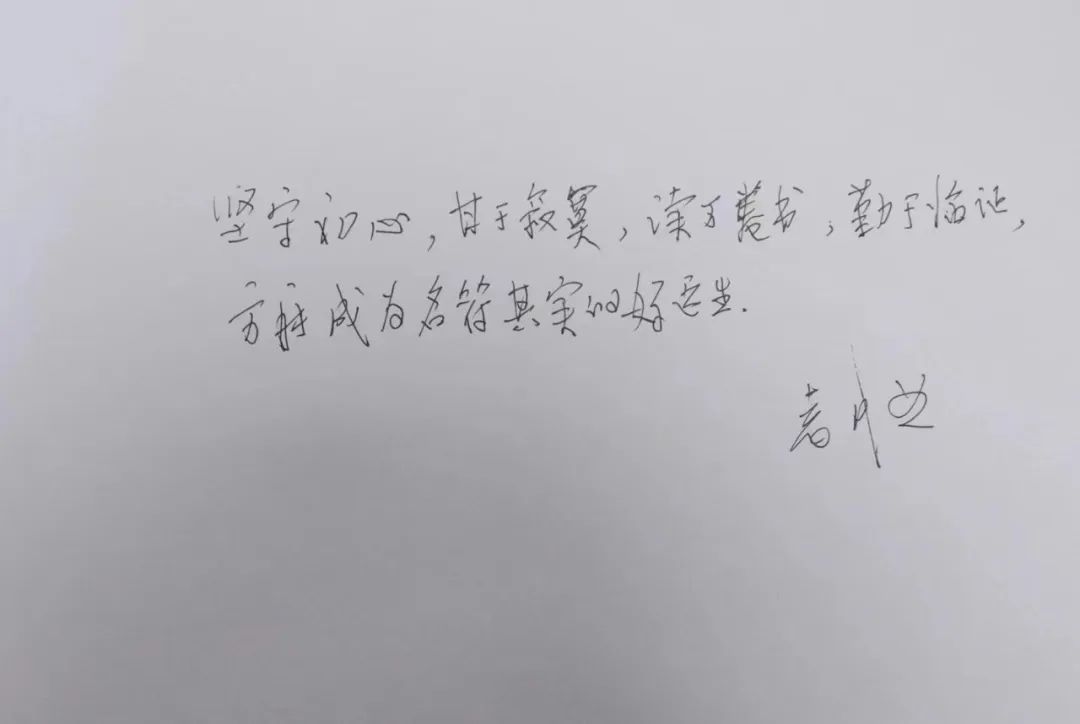 坚守初心,甘于寂寞,读万卷书,勤于临证,
方能成为名符其实的好医生.